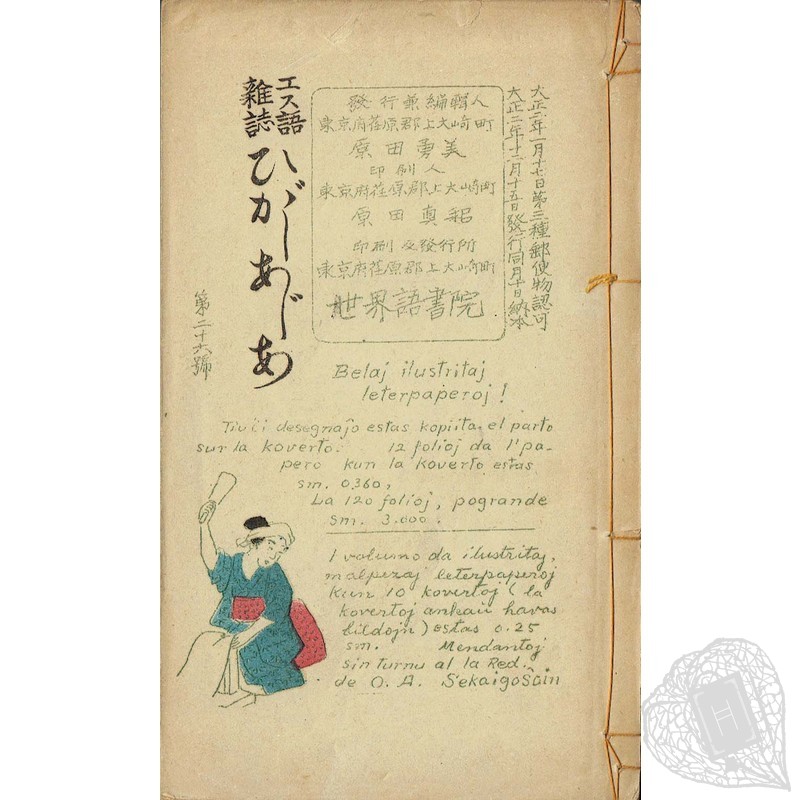 大正二年一月十七日第三種郵便物認可
大正二年十二月十五日發行同月十日納本
發行兼編輯人
東京府荏原郡上大崎町
原田勇美
印刷人
東京府荏原郡上大崎町
原田真招
印刷及發行所
東京府荏原郡上大崎町
世界語書院
エス語
雜誌
ひがしあじあ
第二十六號
Belaj ilustritaj
leterpaperoj!
Tiu ĉi desegnaĵo estas kopiita el parto
sur la koverto. 12 folioj da l'pa-
pero kun la koverto estas
sm. 0.360,
La 120 folioj, pogrande
sm. 3.000.
1 volumo da ilustritaj,
malpezaj leterpaperoj
kun 10 kovertoj (la
kovertoj ankaŭ havas
bildojn) estas 0.25
sm. Mendantoj
sin turnu al la Red.
de O.A. Sekaigoŝoin
H